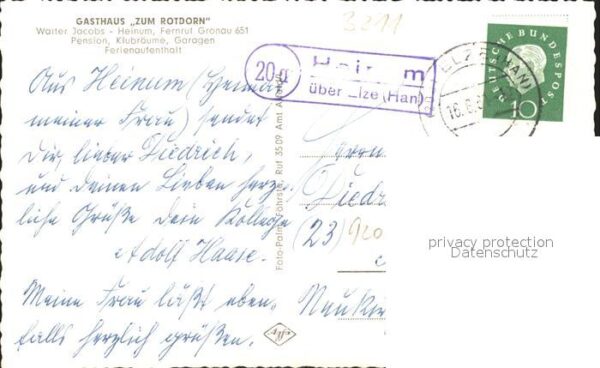 GASTHAUS „ZUM ROTDORN"
Walter Jacobs - Heinum, Fernruf Gronau 651
Pension, Klubräume, Garagen
Ferienaufenthalt
3211
20a
Hei m
über Elze (Han)
ELZE (HAN)
16.6.6
DEUTSCHE BUNDESPOST
10
Aus Heinum (Heimat
meiner Frau) sendet
Dir, lieber Diedrich,
und deinen Lieben herz-
liche Grüße dein Kollege
Adolf Haase.
Meine Frau läßt eben-
falls herzlich grüßen.
Foto-Palm, Föhrste, Ruf 2509 Amt
Herrn
Diedr
(23)
privacy protection
Datenschutz
Agfa